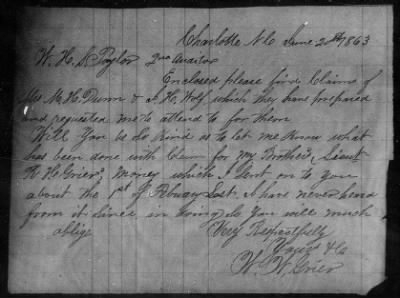 Charlotte N C June 20th 1863
W. H. S. Taylor 2nd Auditor
Enclosed please find Claims of
Mrs M. H. Dunn & J. H. Wolf which they have prepared
and requested me to attend to for them
Will You be so kind as to let me know what
has been done with Claim for my Brother's, Lieut
R. H. Grier's, money which I sent on to you
about the 1st of Febuary Last. I have never heard
from it since in doing so You will much
oblige
Very Respectfully
Yours &c
W. W. Grier